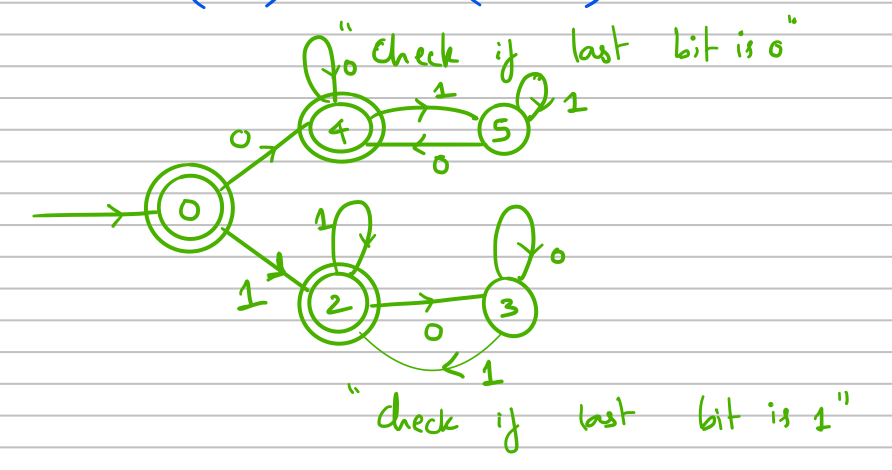 "check if last bit is 0"
0
1
1
4
5
0
0
0
1
1
2
3
0
0
1
"check if last bit is 1"